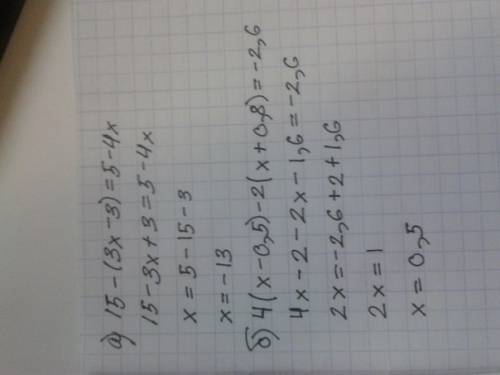 а) 15-(3x-3)=5-4x
15-3x+3=5-4x
x=5-15-3
x=-13
б) 4(x-0,5)-2(x+0,8)=-2,6
4x-2-2x-1,6=-2,6
2x=-2,6+2+1,6
2x=1
x=0,5